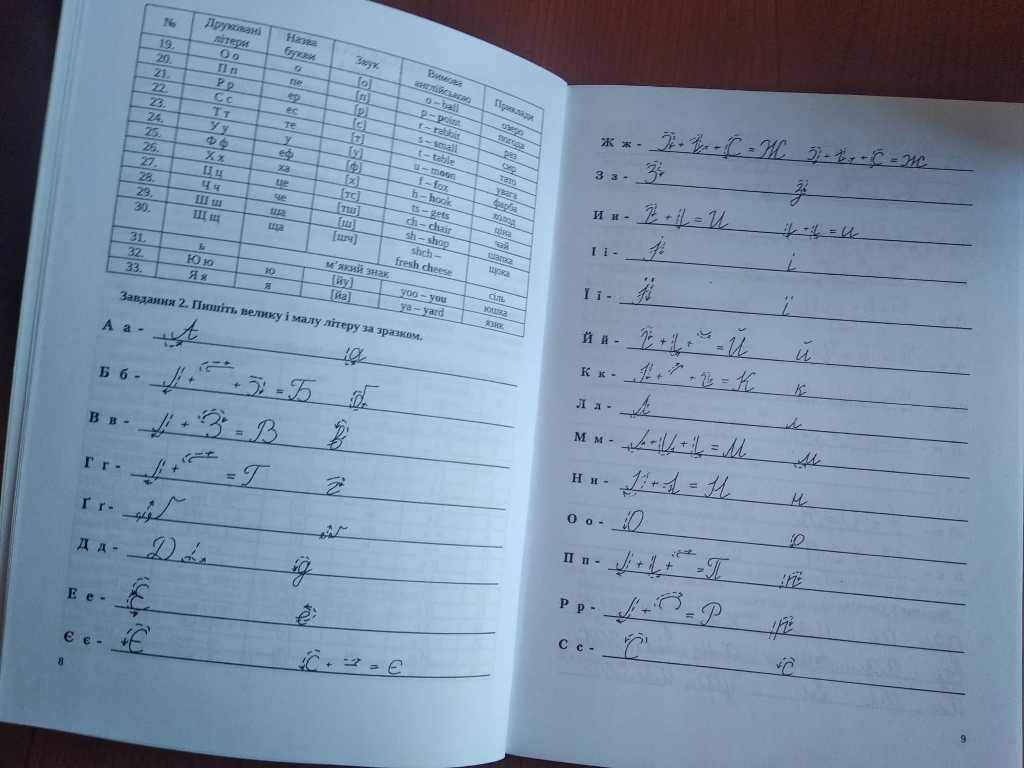 № Друковані літери Назва букви Звук Вимова англійською Приклади
19. О о о [о] o – ball озеро
20. П п пе [п] p – point погода
21. Р р ер [р] r – rabbit
22. С с ес [с] s – small сир
23. Т т те [т] t – table тато
24. У у у [у] u – moon увага
25. Ф ф еф [ф] f – fox фарба
26. Х х ха [х] h – hook холод
27. Ц ц це [тс] ts – gets ціна
28. Ч ч че [тш] ch – chair чай
29. Ш ш ша [ш] sh – shop шапка
30. Щ щ ща [шч] shch – fresh cheese щока
31. ь м'який знак сіль
32. Ю ю ю [йу] yoo – you юшка
33. Я я я [йа] ya – yard язик
Завдання 2. Пишіть велику і малу літеру за зразком.
А а - А а
Б б - = Б б
В в - + З = В в
Г г - = Г г
Ґ ґ - Ґ ґ
Д д - Д д
Е е - Е е
Є є - Є С + = є
8
Ж ж - + + С = Ж + + С = ж
З з - З з
И и - + = И + = и
І і - І і
Ї ї - Ї ї
Й й - + + = Й й
К к - + + = К к
Л л - Л л
М м - + + = М м
Н н - + = Н н
О о - О о
П п - + + = П п
Р р - + = Р р
С с - С с
9